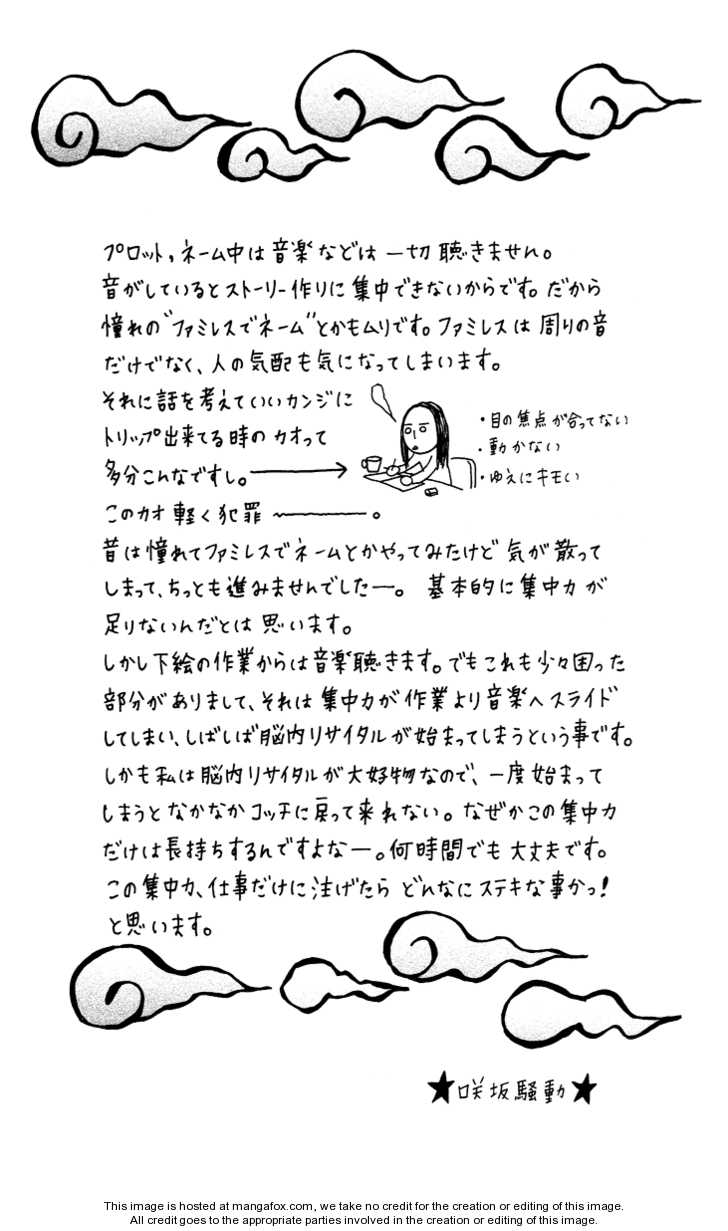 プロット，ネーム中は音楽などは一切聴きません。
音がしているとストーリー作りに集中できないからです。だから
憧れの"ファミレスでネーム"とかもムリです。ファミレスは周りの音
だけでなく、人の気配も気になってしまいます。
それに話を考えていいカンジに
トリップ出来てる時のカオって
多分こんなですし。
・目の焦点が合ってない
・動かない
・ゆえにキモい
このカオ軽く犯罪〜――。
昔は憧れてファミレスでネームとかやってみたけど気が散って
しまって、ちっとも進みませんでしたー。 基本的に集中力が
足りないんだとは思います。
しかし下絵の作業からは音楽聴きます。でもこれも少々困った
部分がありまして、それは集中力が作業より音楽へスライド
してしまい、しばしば脳内リサイタルが始まってしまうという事です。
しかも私は脳内リサイタルが大好物なので、一度始まって
しまうとなかなかコッチに戻って来れない。なぜかこの集中力
だけは長持ちするんですよなー。何時間でも大丈夫です。
この集中力、仕事だけに注げたらどんなにステキな事かっ!
と思います。
★咲坂騒動★
This image is hosted at mangafox.com, we take no credit for the creation or editing of this image.
All credit goes to the appropriate parties involved in the creation or editing of this image.